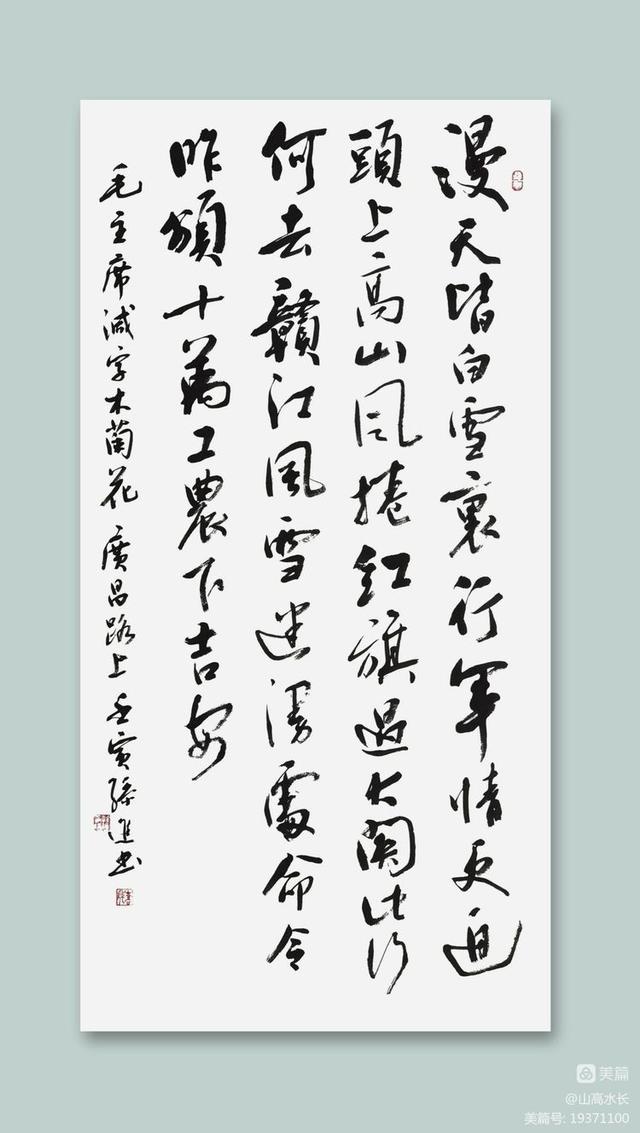 漫天皆白雪裏行軍情更迫
頭上高山風捲紅旗過大關此行
何去贛江風雪迷漫處命令
昨頒十萬工農下吉安
毛主席減字木蘭花 廣昌路上 壬寅 進書
美篇
@山高水长
美篇号: 19371100